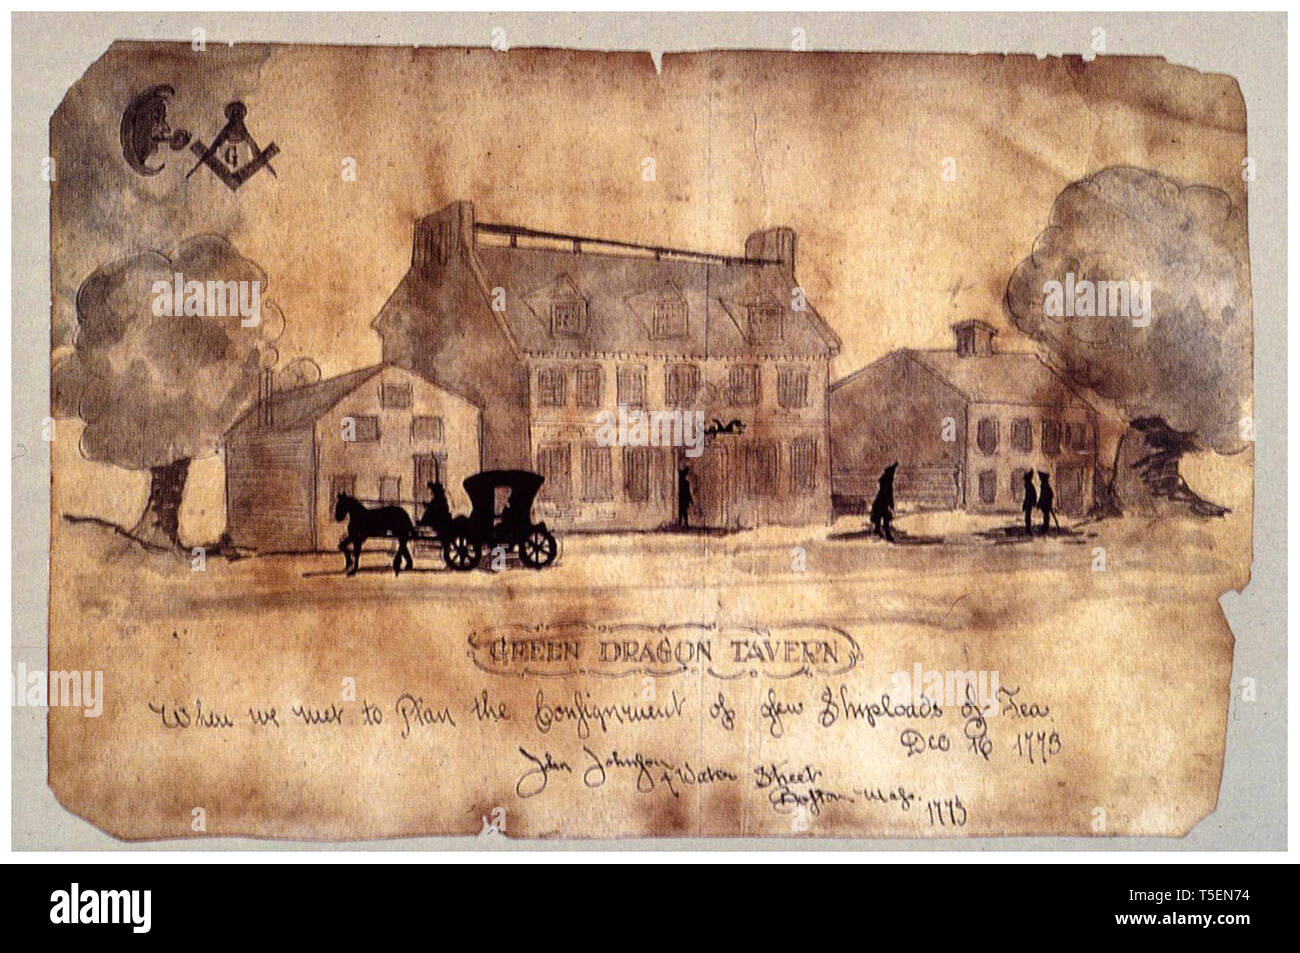 G
GREEN DRAGON TAVERN
Where we met to Plan the Consignment of few Shiploads of Tea.
Dec 16 1773
John Johnson
4 Water Street
Boston Mass.
1773
alamy
a
alamy
www.alamy.com
Image ID: T5EN74